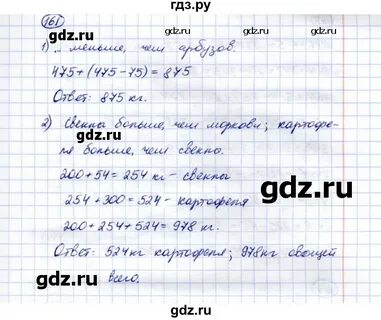 gdz.ru gdz.ru
161
1) .. меньше, чем арбузов.
475 + (475 - 75) = 875
Ответ: 875 кг.
gdz.ru gdz.ru
2) Свеклы больше, чем моркови; картофе-
ля больше, чем свеклы.
200 + 54 = 254 кг - свеклы
gdz.ru
254 + 300 = 524 - картофеля
200 + 254 + 524 = 978 кг.
Ответ: 524 кг картофеля; 978 кг овощей
всего.
gdz.ru gdz.ru